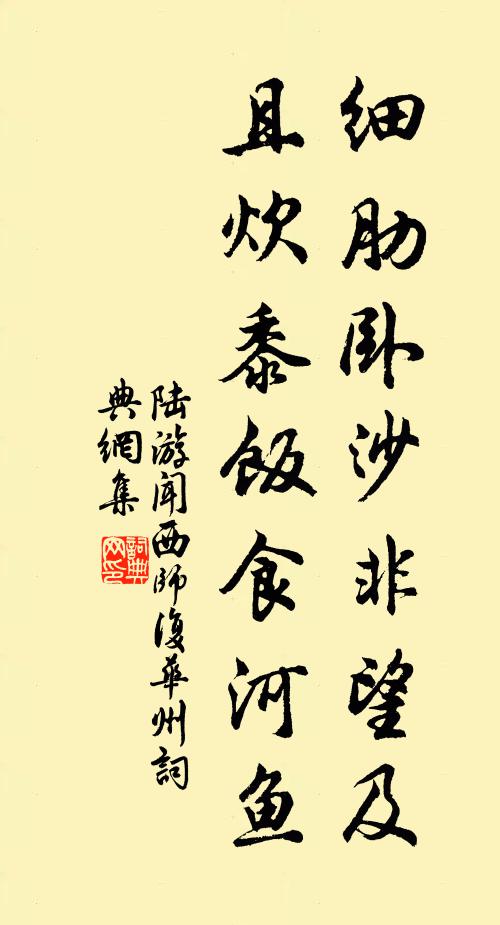 细肋卧沙非望及
且炊黍饭食河鱼
陆游闻西师復华州詞
典網集
詞典网印